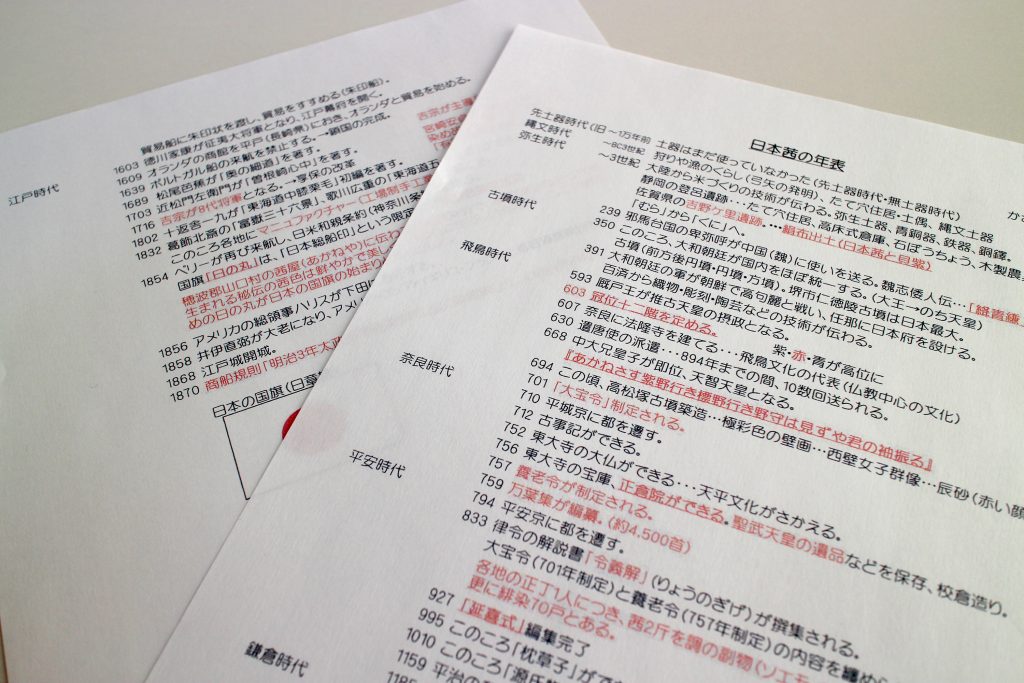 貿易船に朱印状を渡し、貿易をすすめる(朱印船)。
江戸時代
1603 徳川家康が征夷大将軍となり、江戸幕府を開く。
1609 オランダの商館を平戸(長崎県)におき、オランダと貿易を始める。
1639 ポルトガル船の来航を禁止する。→鎖国の完成。
1689 松尾芭蕉が「奥の細道」を著す。
1703 近松門左衛門が「曽根崎心中」を著す。
1716 吉宗が8代将軍となる。→享保の改革
1802 十返舎一九が「東海道中膝栗毛」初編を著す。
1832 葛飾北斎の「富嶽三十六景」、歌川広重の「東海道五
このころ各地にマニュファクチャー(工場制手工業
1854 ペリーが再び来航し、日米和親条約(神奈川条
国旗「日の丸」は、「日本総船印」という限定
穂波郡山口村の茜屋(あかねや)に伝わ
生まれる秘伝の茜色は鮮やかで美し
めの日の丸が日本の国旗の始まり
1856 アメリカの総領事ハリスが下田に
1858 井伊直弼が大老になり、アメ
1868 江戸城開城。
1870 商船規則「明治3年太政
日本の国旗(日章
吉宗が主導
宮崎安
染め
日本茜の年表
先土器時代(旧 ~1万年前 土器はまだ使っていなかった(先土器時代・無土器時代)
縄文時代 ~BC3世紀 狩りや漁のくらし(弓矢の発明)、たて穴住居・土偶、縄文土器
弥生時代 ~3世紀 大陸から米づくりの技術が伝わる。弥生土器、青銅器、鉄器、銅鐸。
静岡の登呂遺跡…たて穴住居、高床式倉庫、石ぼうちょう、木製農
佐賀県の吉野ケ里遺跡。…絹布出土(日本茜と貝紫)
「むら」から「くに」へ。
古墳時代
239 邪馬台国の卑弥呼が中国(魏)に使いを送る。魏志倭人伝…「絳青縑
350 このころ、大和朝廷が国内をほぼ統一する。(大王→のち天皇)
古墳(前方後円墳・円墳・方墳)。堺市仁徳陵古墳は日本最大。
391 大和朝廷の軍が朝鮮で高句麗と戦い、任那に日本府を設ける。
百済から織物・彫刻・陶芸などの技術が伝わる。
飛鳥時代
593 厩戸王が推古天皇の摂政となる。
603 冠位十二階を定める。 紫・赤・青が高位に
607 奈良に法隆寺を建てる…飛鳥文化の代表(仏教中心の文化)
630 遣唐使の派遣…894年までの間、10数回送られる。
668 中大兄皇子が即位、天智天皇となる。
『あかねさす紫野行き標野行き野守は見ずや君の袖振る』
694 この頃、高松塚古墳築造…極彩色の壁画…西壁女子群像…辰砂(赤い顔
701 「大宝令」制定される。
奈良時代
710 平城京に都を遷す。
712 古事記ができる。
752 東大寺の大仏ができる…天平文化がさかえる。
756 東大寺の宝庫、正倉院ができる。聖武天皇の遺品などを保存、校倉造り。
757 養老令が制定される。
759 万葉集が編纂。(約4,500首)
平安時代
794 平安京に都を遷す。
833 律令の解説書「令義解」(りょうのぎげ)が撰集される。
大宝令(701年制定)と養老令(757年制定)の内容を纏め
各地の正丁1人につき、茜2斤を調の副物(ソエモ
更に緋染70戸とある。
927 「延喜式」編集完了
995 このころ「枕草子」が
1010 このころ「源氏
1159 平治の
鎌倉時代